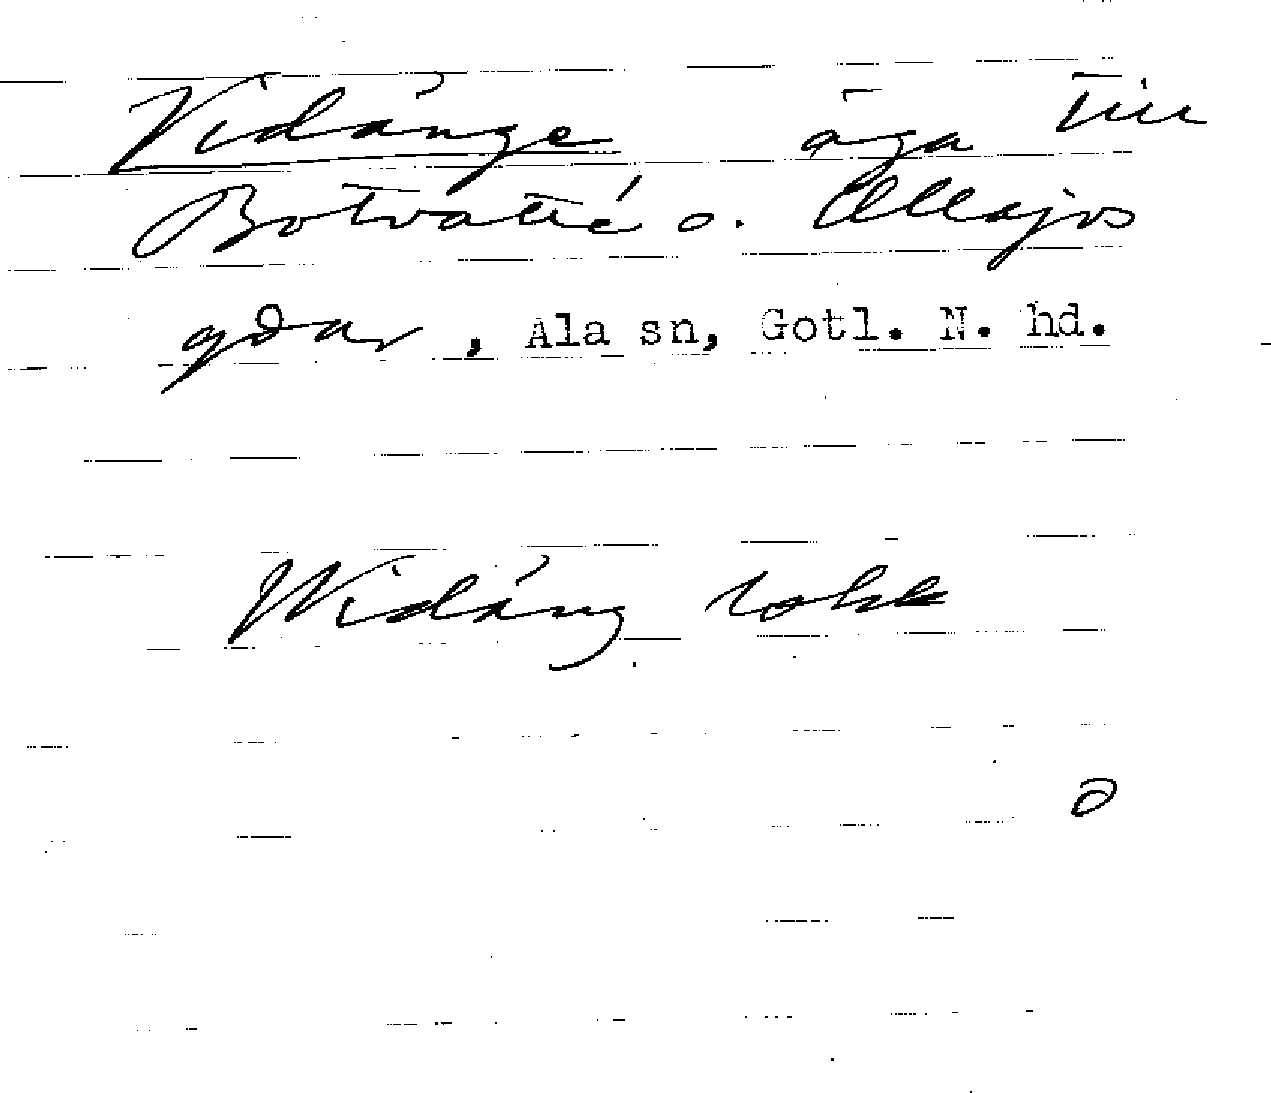 Vidänge äga till
Botvatte o. Ollajvs
gdar, Ala sn, Gotl. N. hd.
Widäng